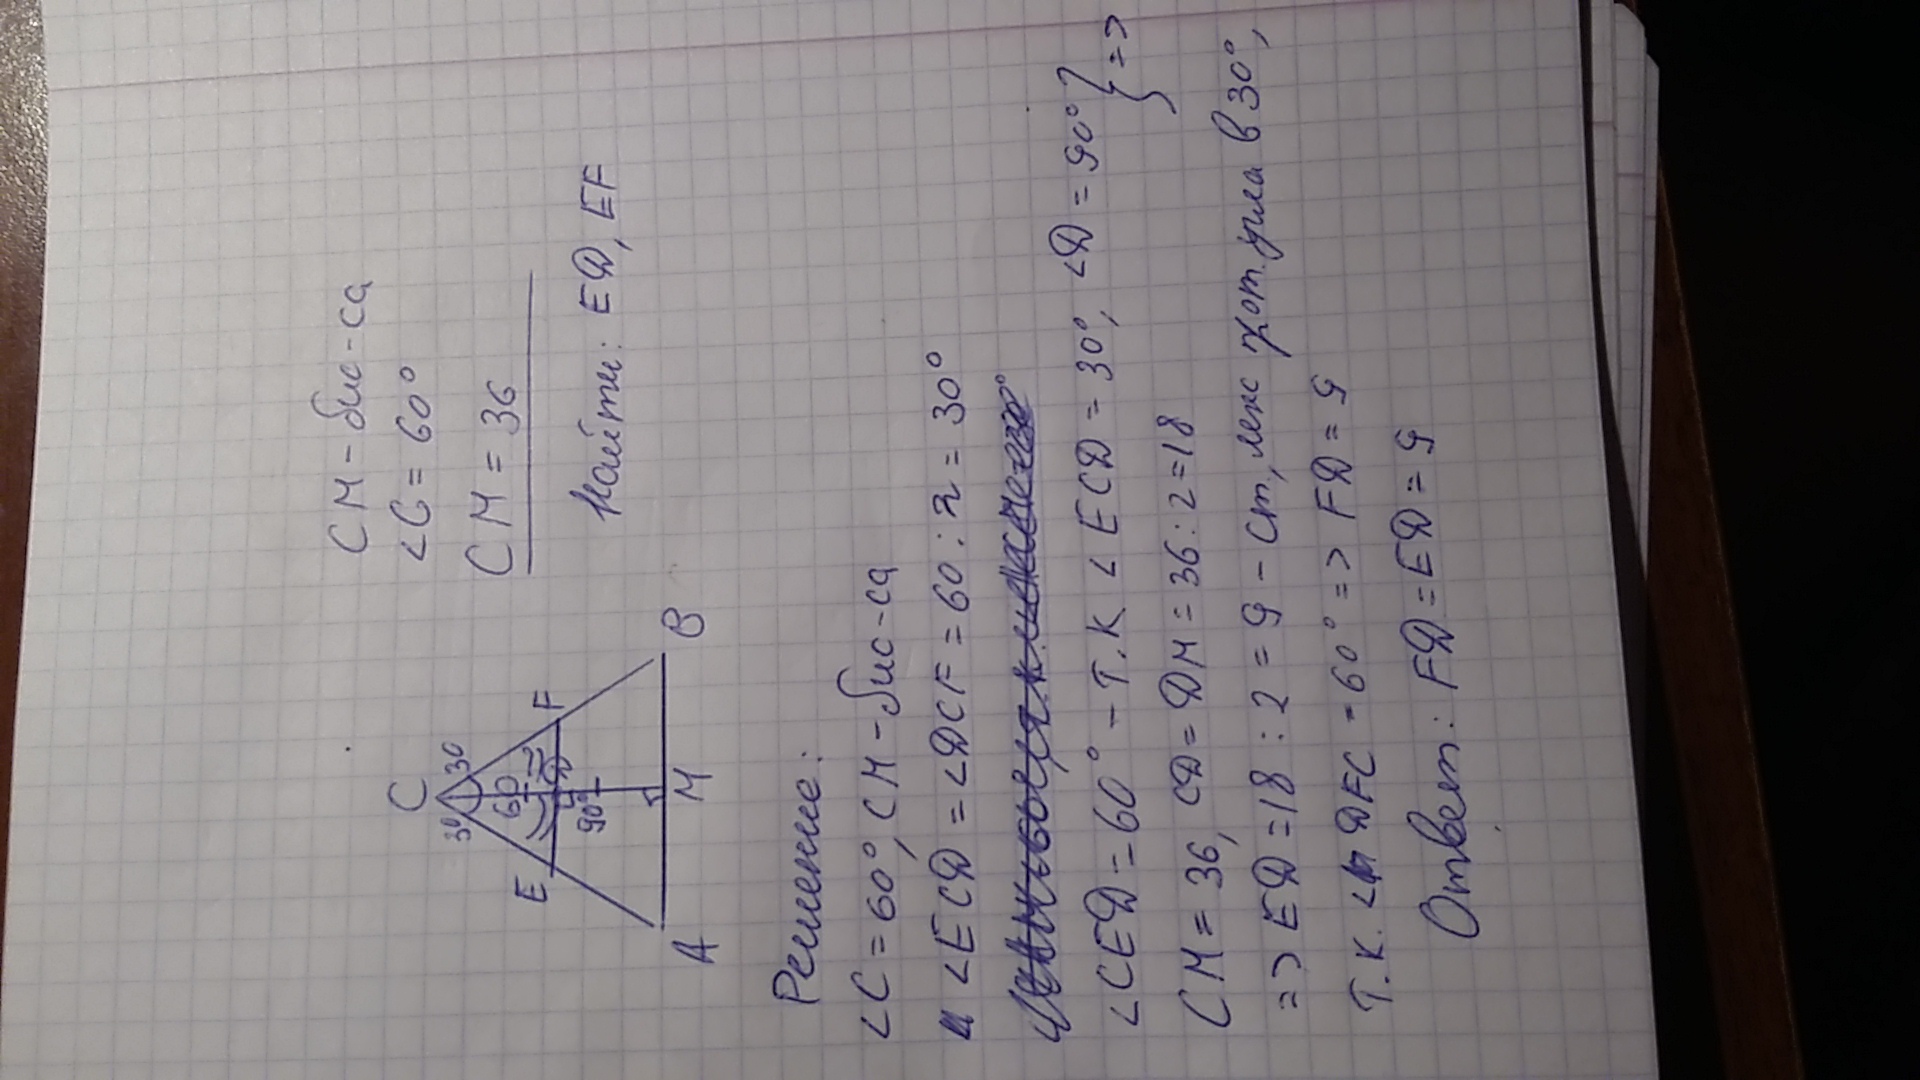 CM - бис-са
∠C = 60°
CM = 36
Найти: ED, EF
C
30
30
60
E
F
D
90°
A
M
B
Решение:
∠C = 60°, CM - бис-са
и ∠ECD = ∠DCF = 60 : 2 = 30°
∠CED = 60° - т.к ∠ECD = 30°, ∠D = 90° } =>
CM = 36, CD = DM = 36 : 2 = 18
=> ED = 18 : 2 = 9 - ст, леж кот. угла в 30°,
т.к. ∠DFC = 60° => FD = 9
Ответ: FD = ED = 9